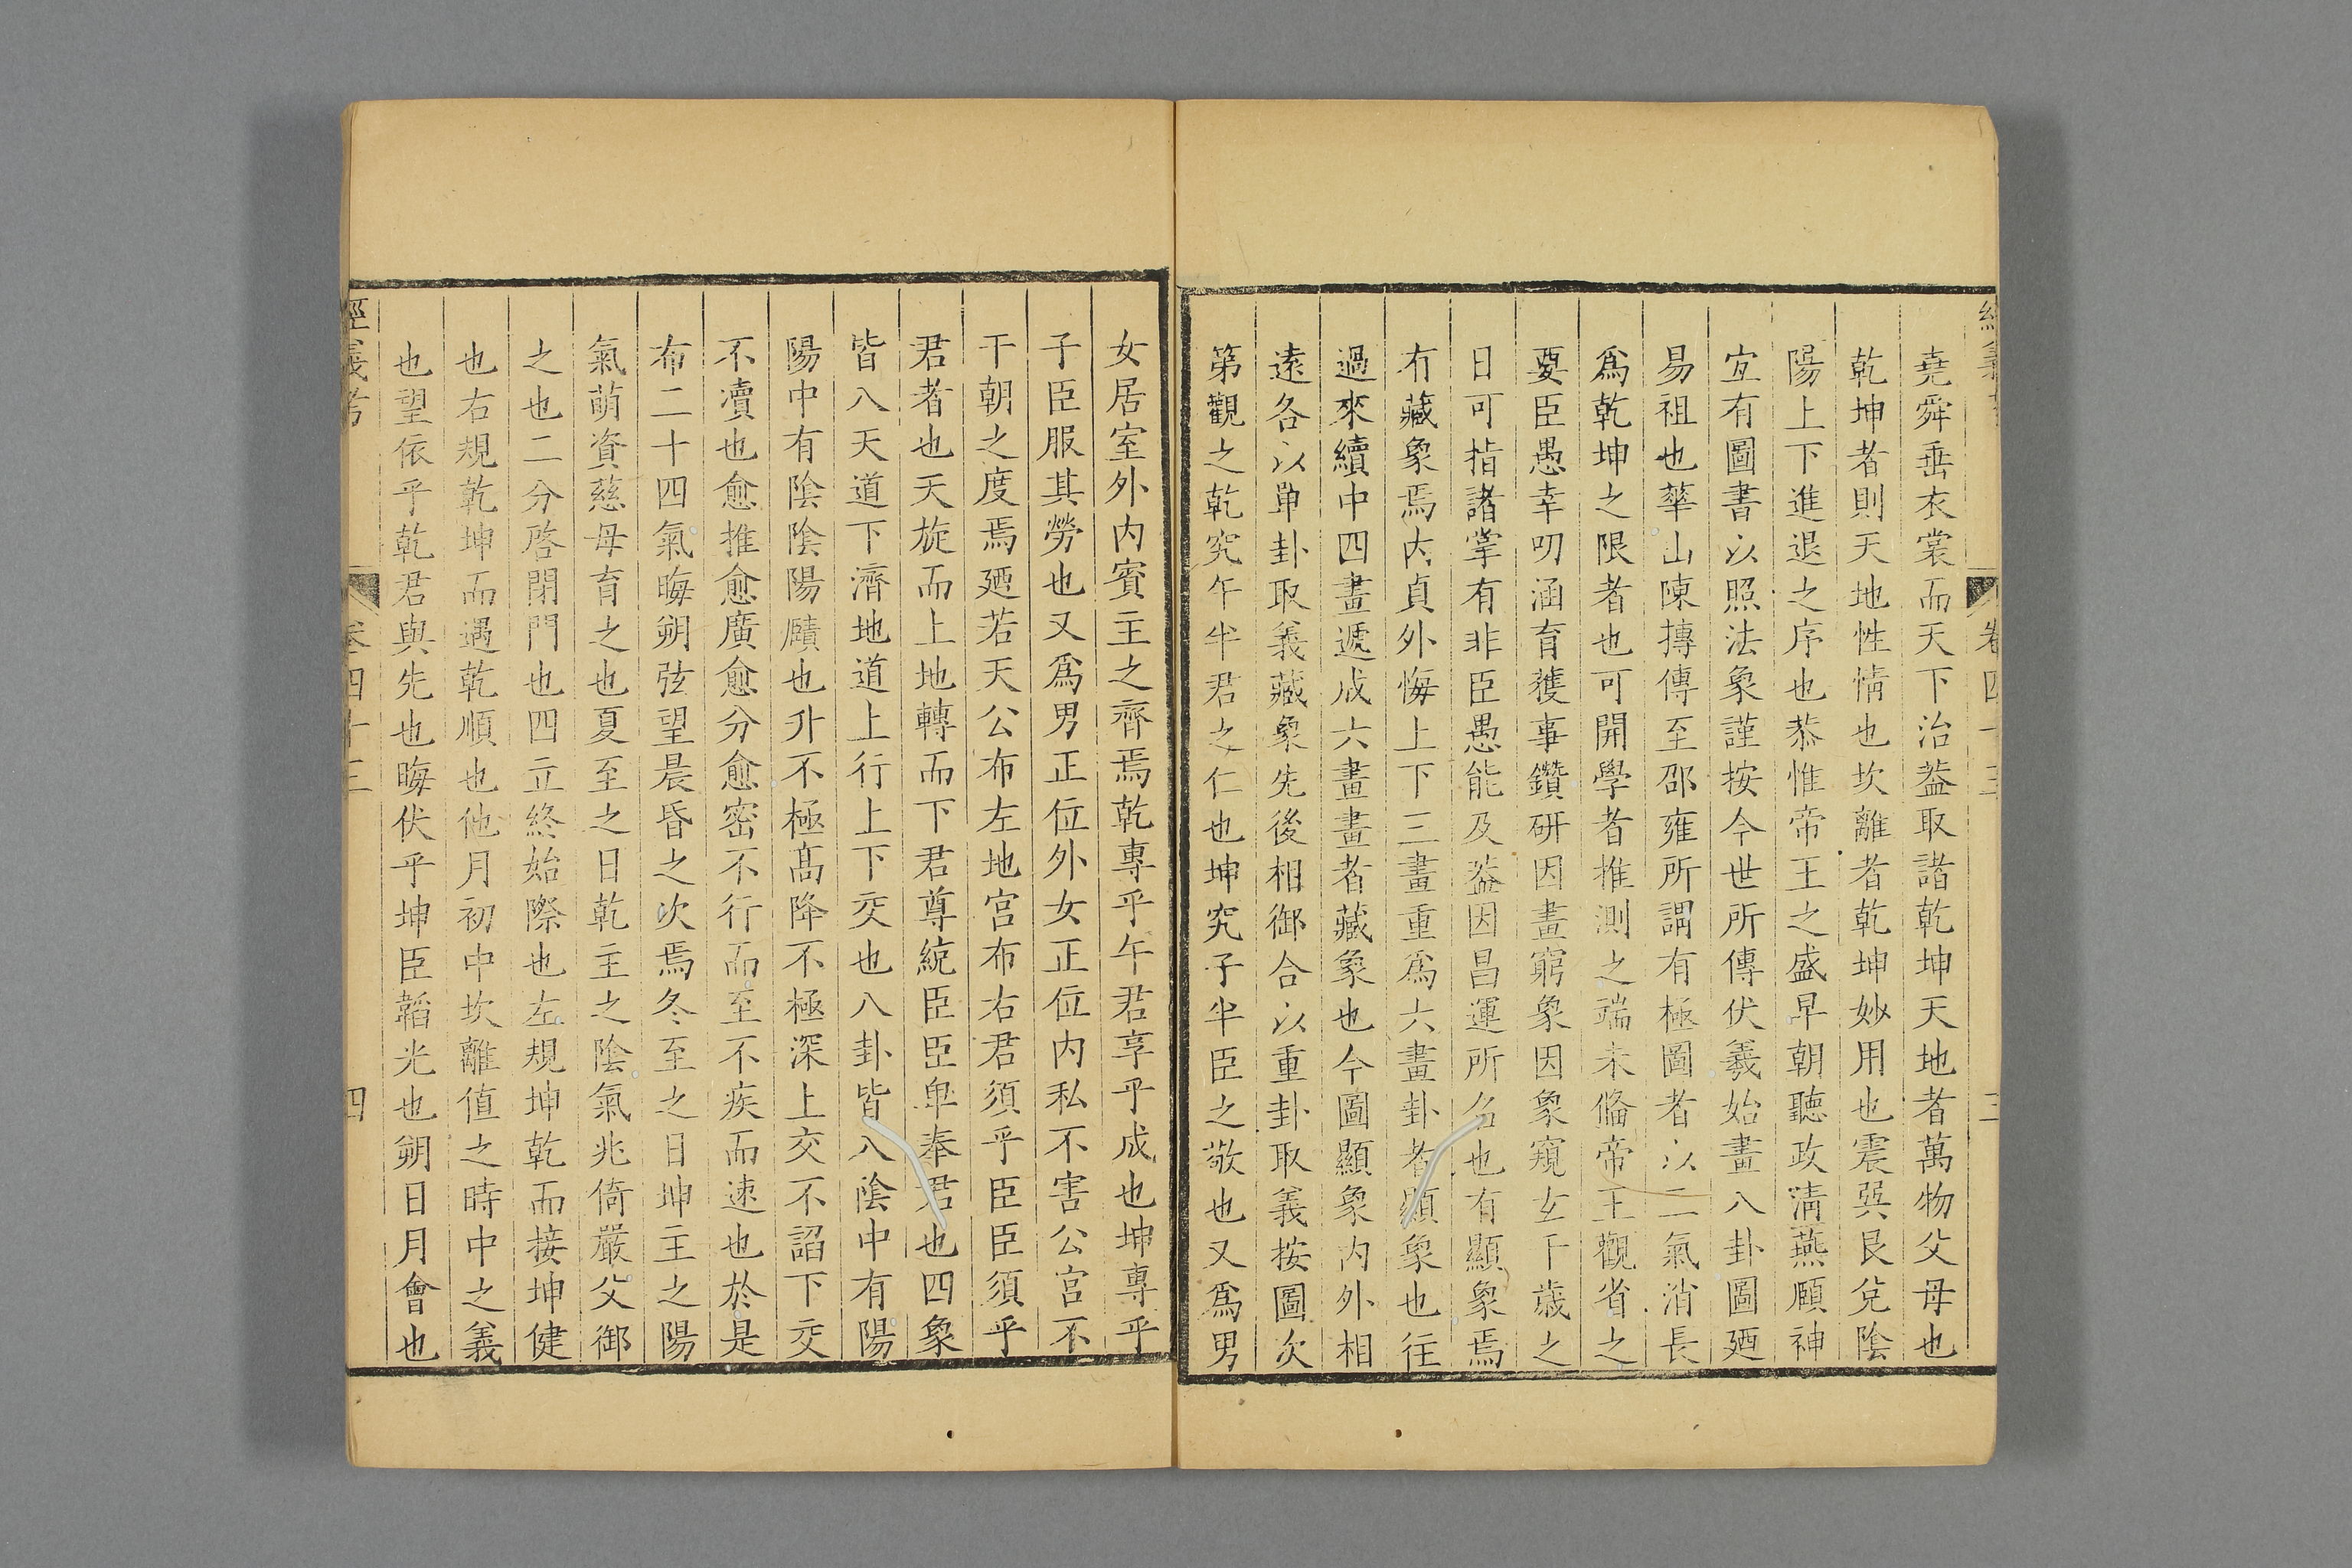 堯舜垂衣裳而天下治葢取諸乾坤天地者萬物父母也
乾坤者則天地性情也坎離者乾坤妙用也震巽艮兌陰
陽上下進退之序也恭惟帝王之盛早朝聽政淸燕頤神
宜有圖書以照法象謹按今世所傳伏羲始畫八卦圖廼
易祖也華山陳摶傳至邵雍所謂有極圖者以二氣消長
爲乾坤之限者也可開學者推測之端未俻帝王觀省之
要臣愚幸叨涵育獲事鑽研因畫窮象因象窺玄千歲之
日可指諸掌有非臣愚能及葢因昌運所名也有顯象焉
有藏象焉内貞外悔上下三畫重爲六畫卦者顯象也往
過來續中四畫遞成六畫畫者藏象也今圖顯象内外相
遠各以单卦取義藏象先後相御合以重卦取義按圖次
第觀之乾究午半君之仁也坤究子半臣之敬也又爲男
女居室外内賓主之齊焉乾專乎午君享乎成也坤專乎
子臣服其勞也又爲男正位外女正位内私不害公宫不
干朝之度焉廼若天公布左地宫布右君須乎臣臣須乎
君者也天旋而上地轉而下君尊統臣臣卑奉君也四象
皆八天道下濟地道上行上下交也八卦皆八陰中有陽
陽中有陰陰陽賾也升不極髙降不極深上交不諂下交
不瀆也愈推愈廣愈分愈密不行而至不疾而速也於是
布二十四氣晦朔弦望晨昏之次焉冬至之日坤主之陽
氣萌資慈母育之也夏至之日乾主之陰氣兆倚嚴父御
之也二分啓閉門也四立終始際也左規坤乾而接坤健
也右規乾坤而遇乾順也他月初中坎離值之時中之義
也望依乎乾君與先也晦伏乎坤臣韜光也朔日月會也
經義考
卷四十三
四